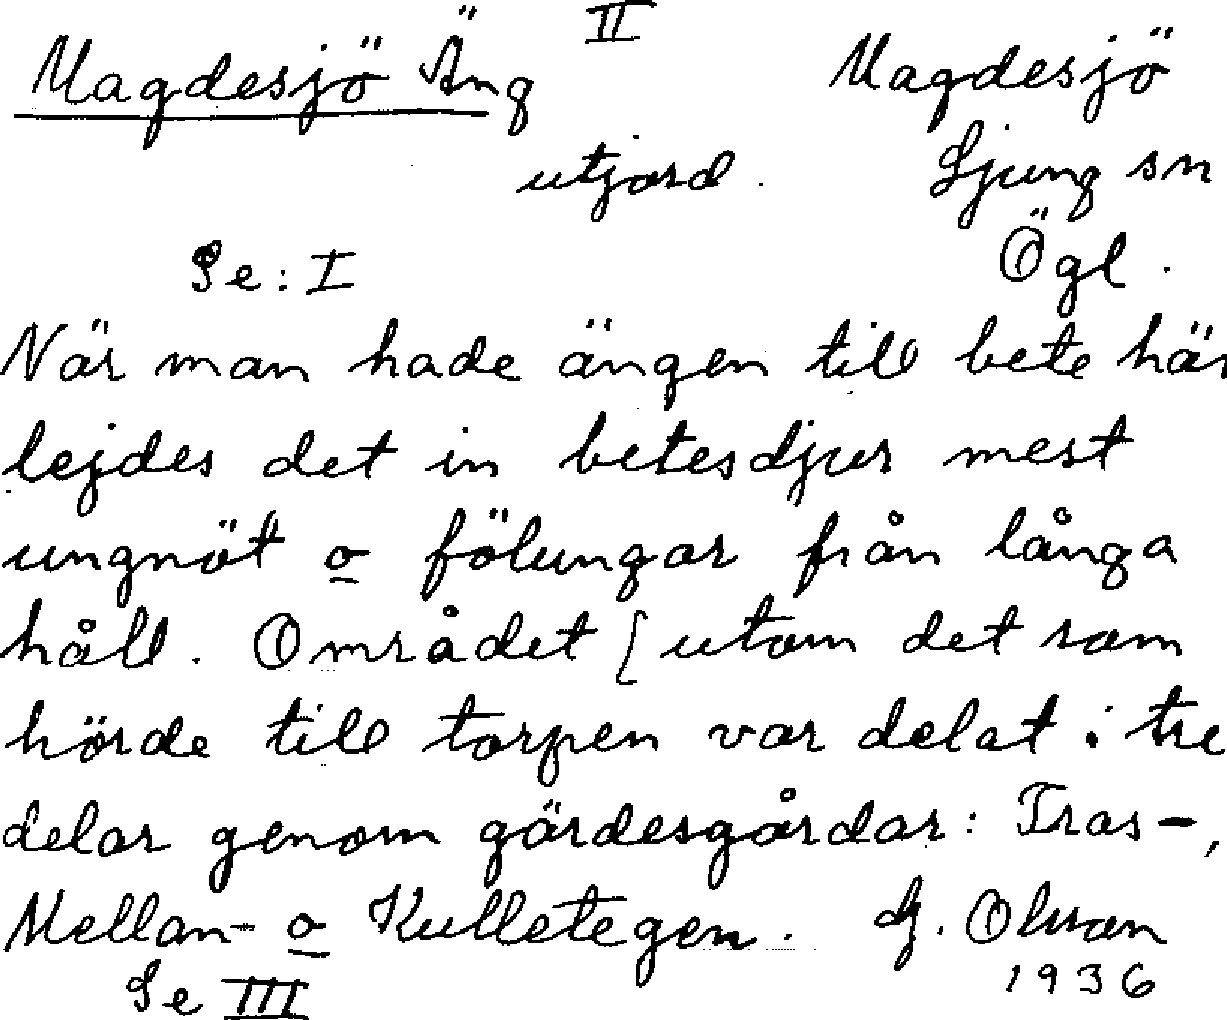 II
Magdesjö Äng
Magdesjö
utjord.
Ljung sn
Se: I
Ögl.
När man hade ängen till bete här
lejdes det in betesdjur mest
ungnöt o fölungar från långa
håll. Området [utom det som
hörde till torpen var delat i tre
delar genom gärdesgårdar: Tras-,
Mellan- o Kulletegen. G. Olsson
Se III
1936